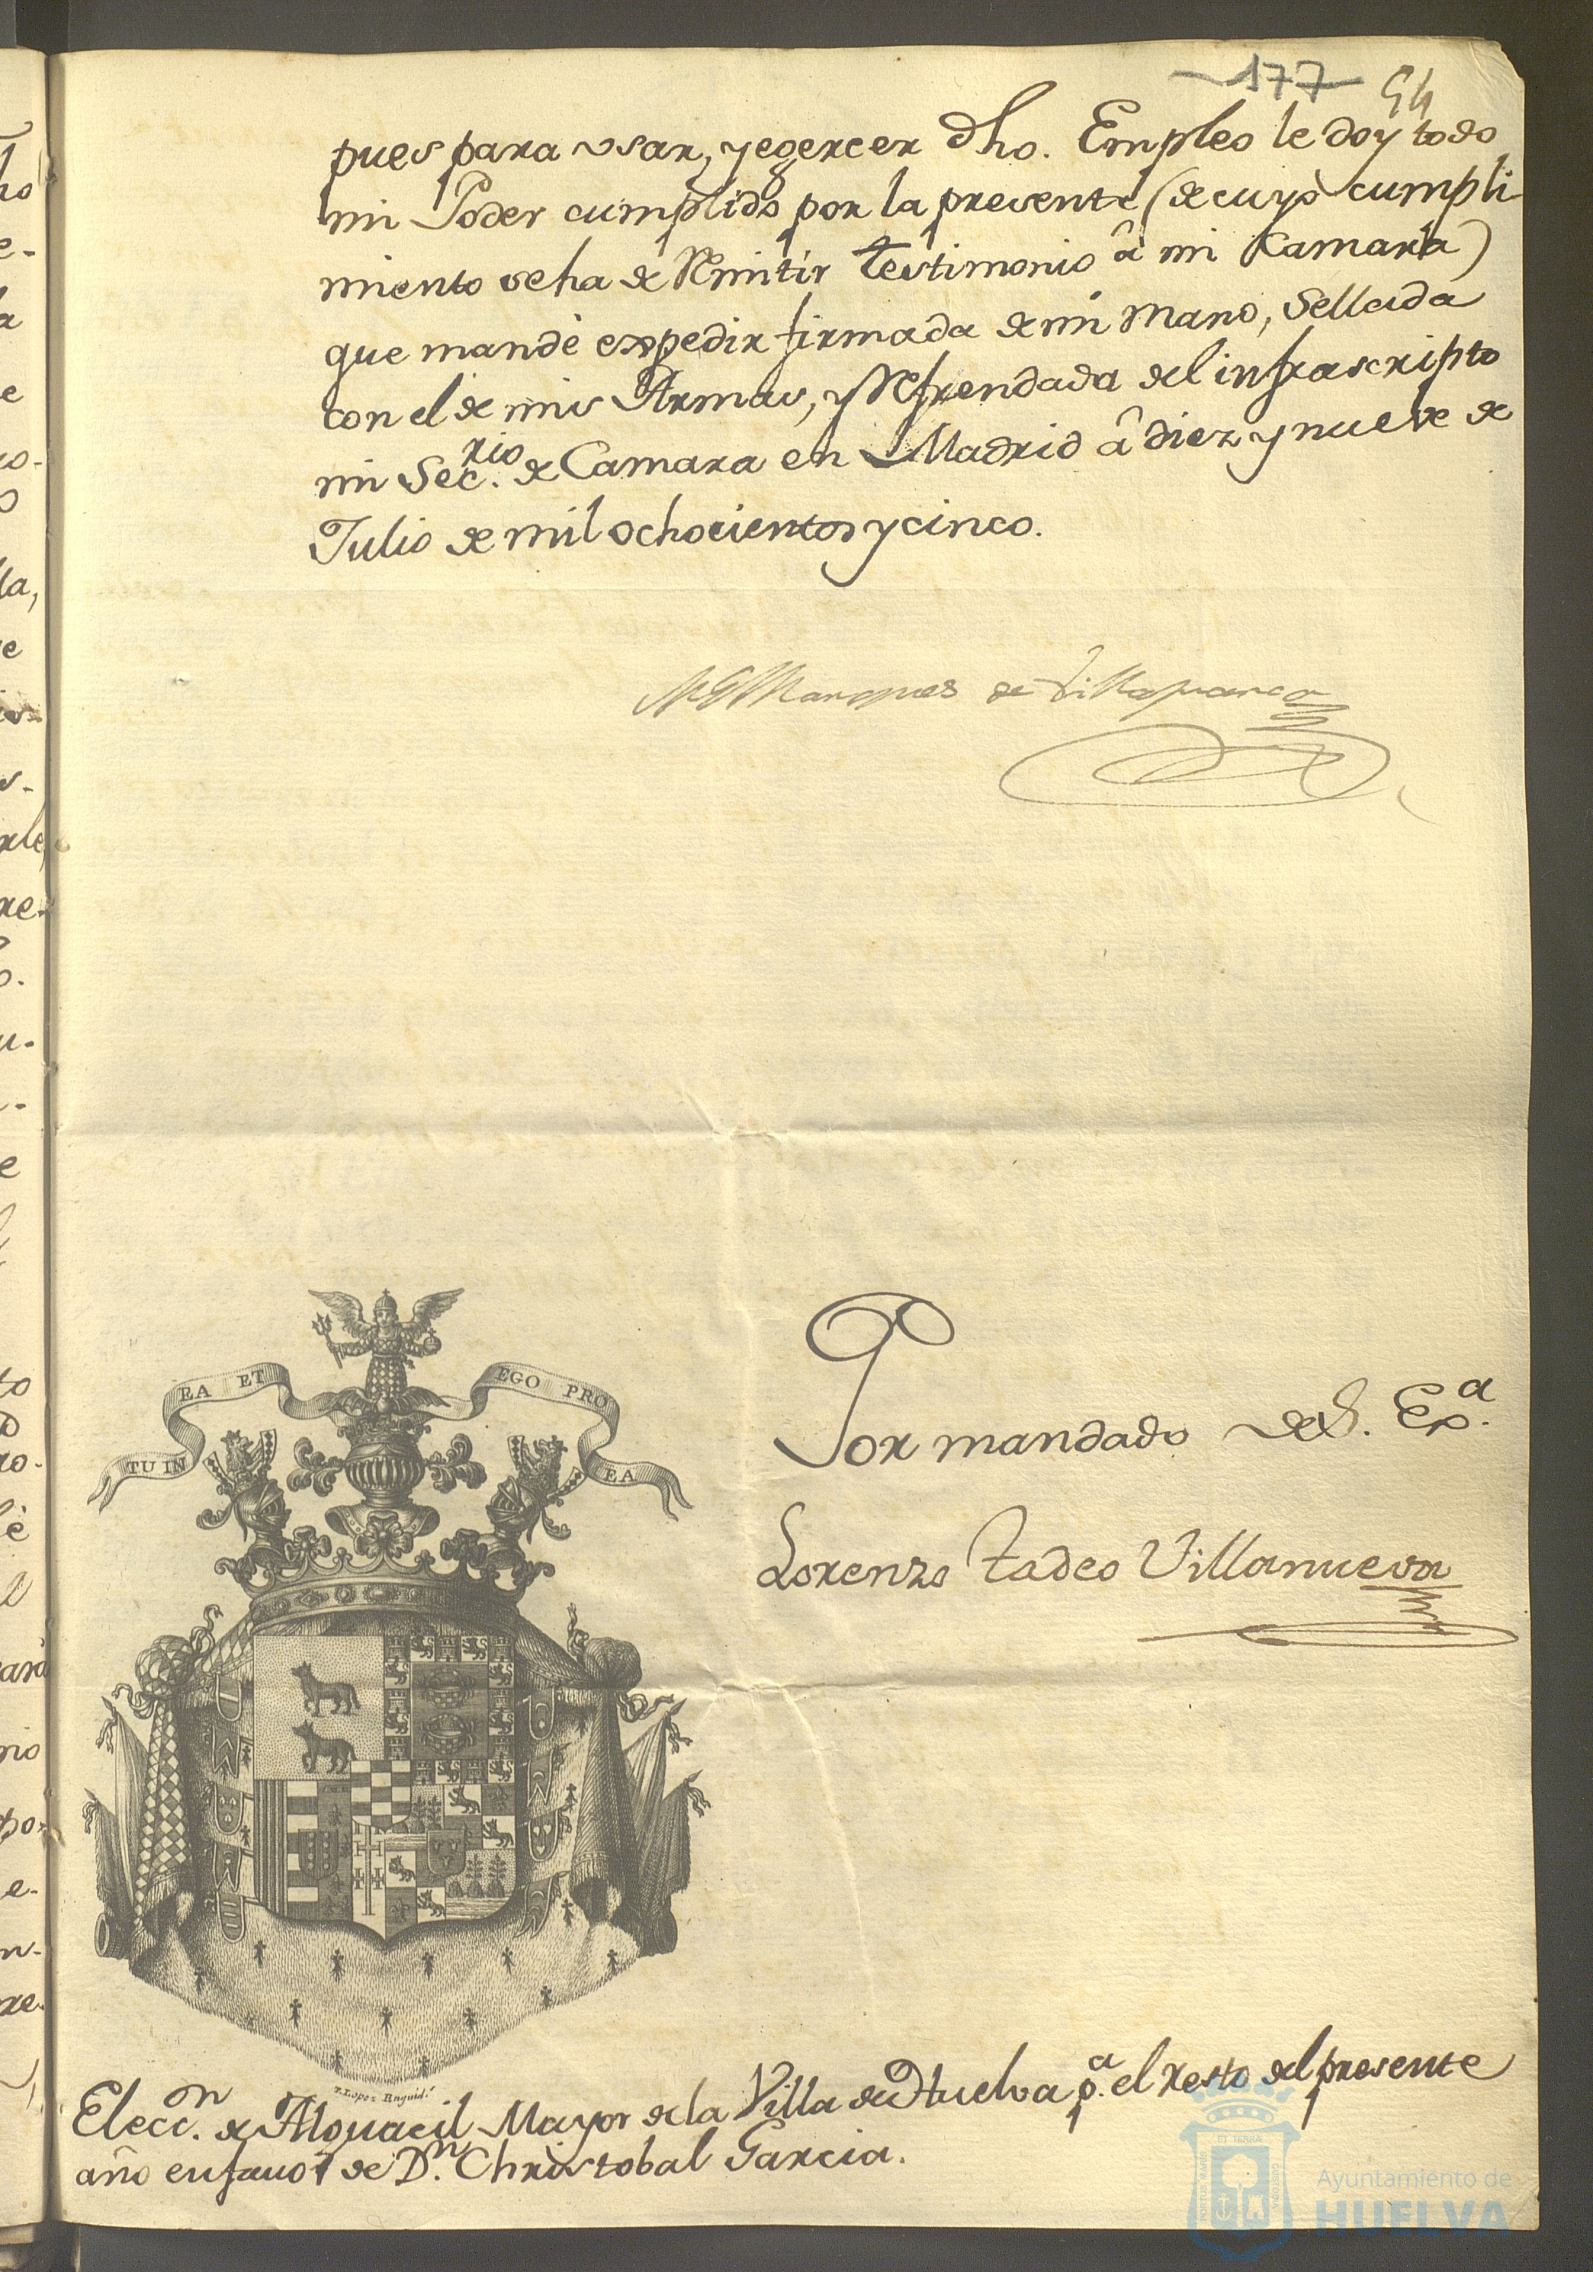 177 94
pues para usar, y egercer dho. Empleo le doy todo
mi Poder cumplido por la presente (de cuyo cumpli-
miento se ha de Remitir testimonio â mi Camara)
que mandè expedir firmada de mi mano, Sellada
con el de mis Armas, y Refrendada del infrascripto
mi Sec.rio de Camara en Madrid â diez y nueve de
Julio de mil ochocientos y cinco.
Marques de Villafranca
TU IN EA ET EGO PRO EA
Por mandado de S. Ex.a
Lorenzo Tadeo Villanueva
Elecc.n de Alguacil Mayor de la Villa de Huelva p.a el resto del presente
año en favor de D.n Christobal Garcia.
Ayuntamiento de
HUELVA